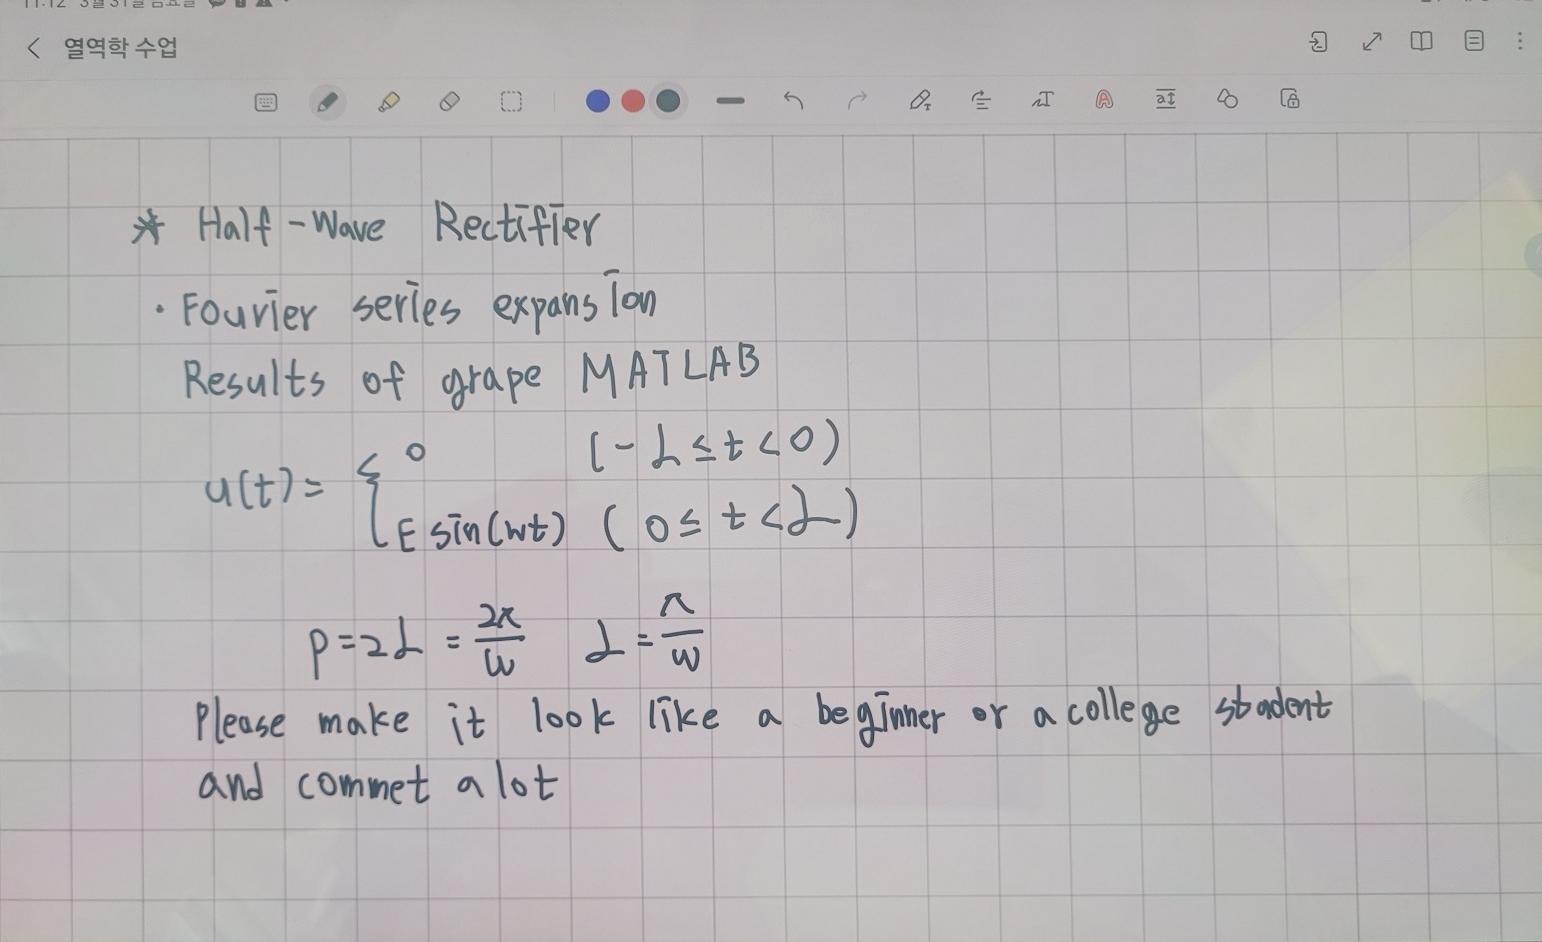 열역학 수업
* Half-Wave Rectifier
· Fourier series expansion
Results of grape MATLAB
u(t) = { 0 (-L ≤ t < 0)
E sin(wt) (0 ≤ t < L)
p = 2L = 2π/w L = π/w
Please make it look like a beginner or a college stadent
and commet a lot